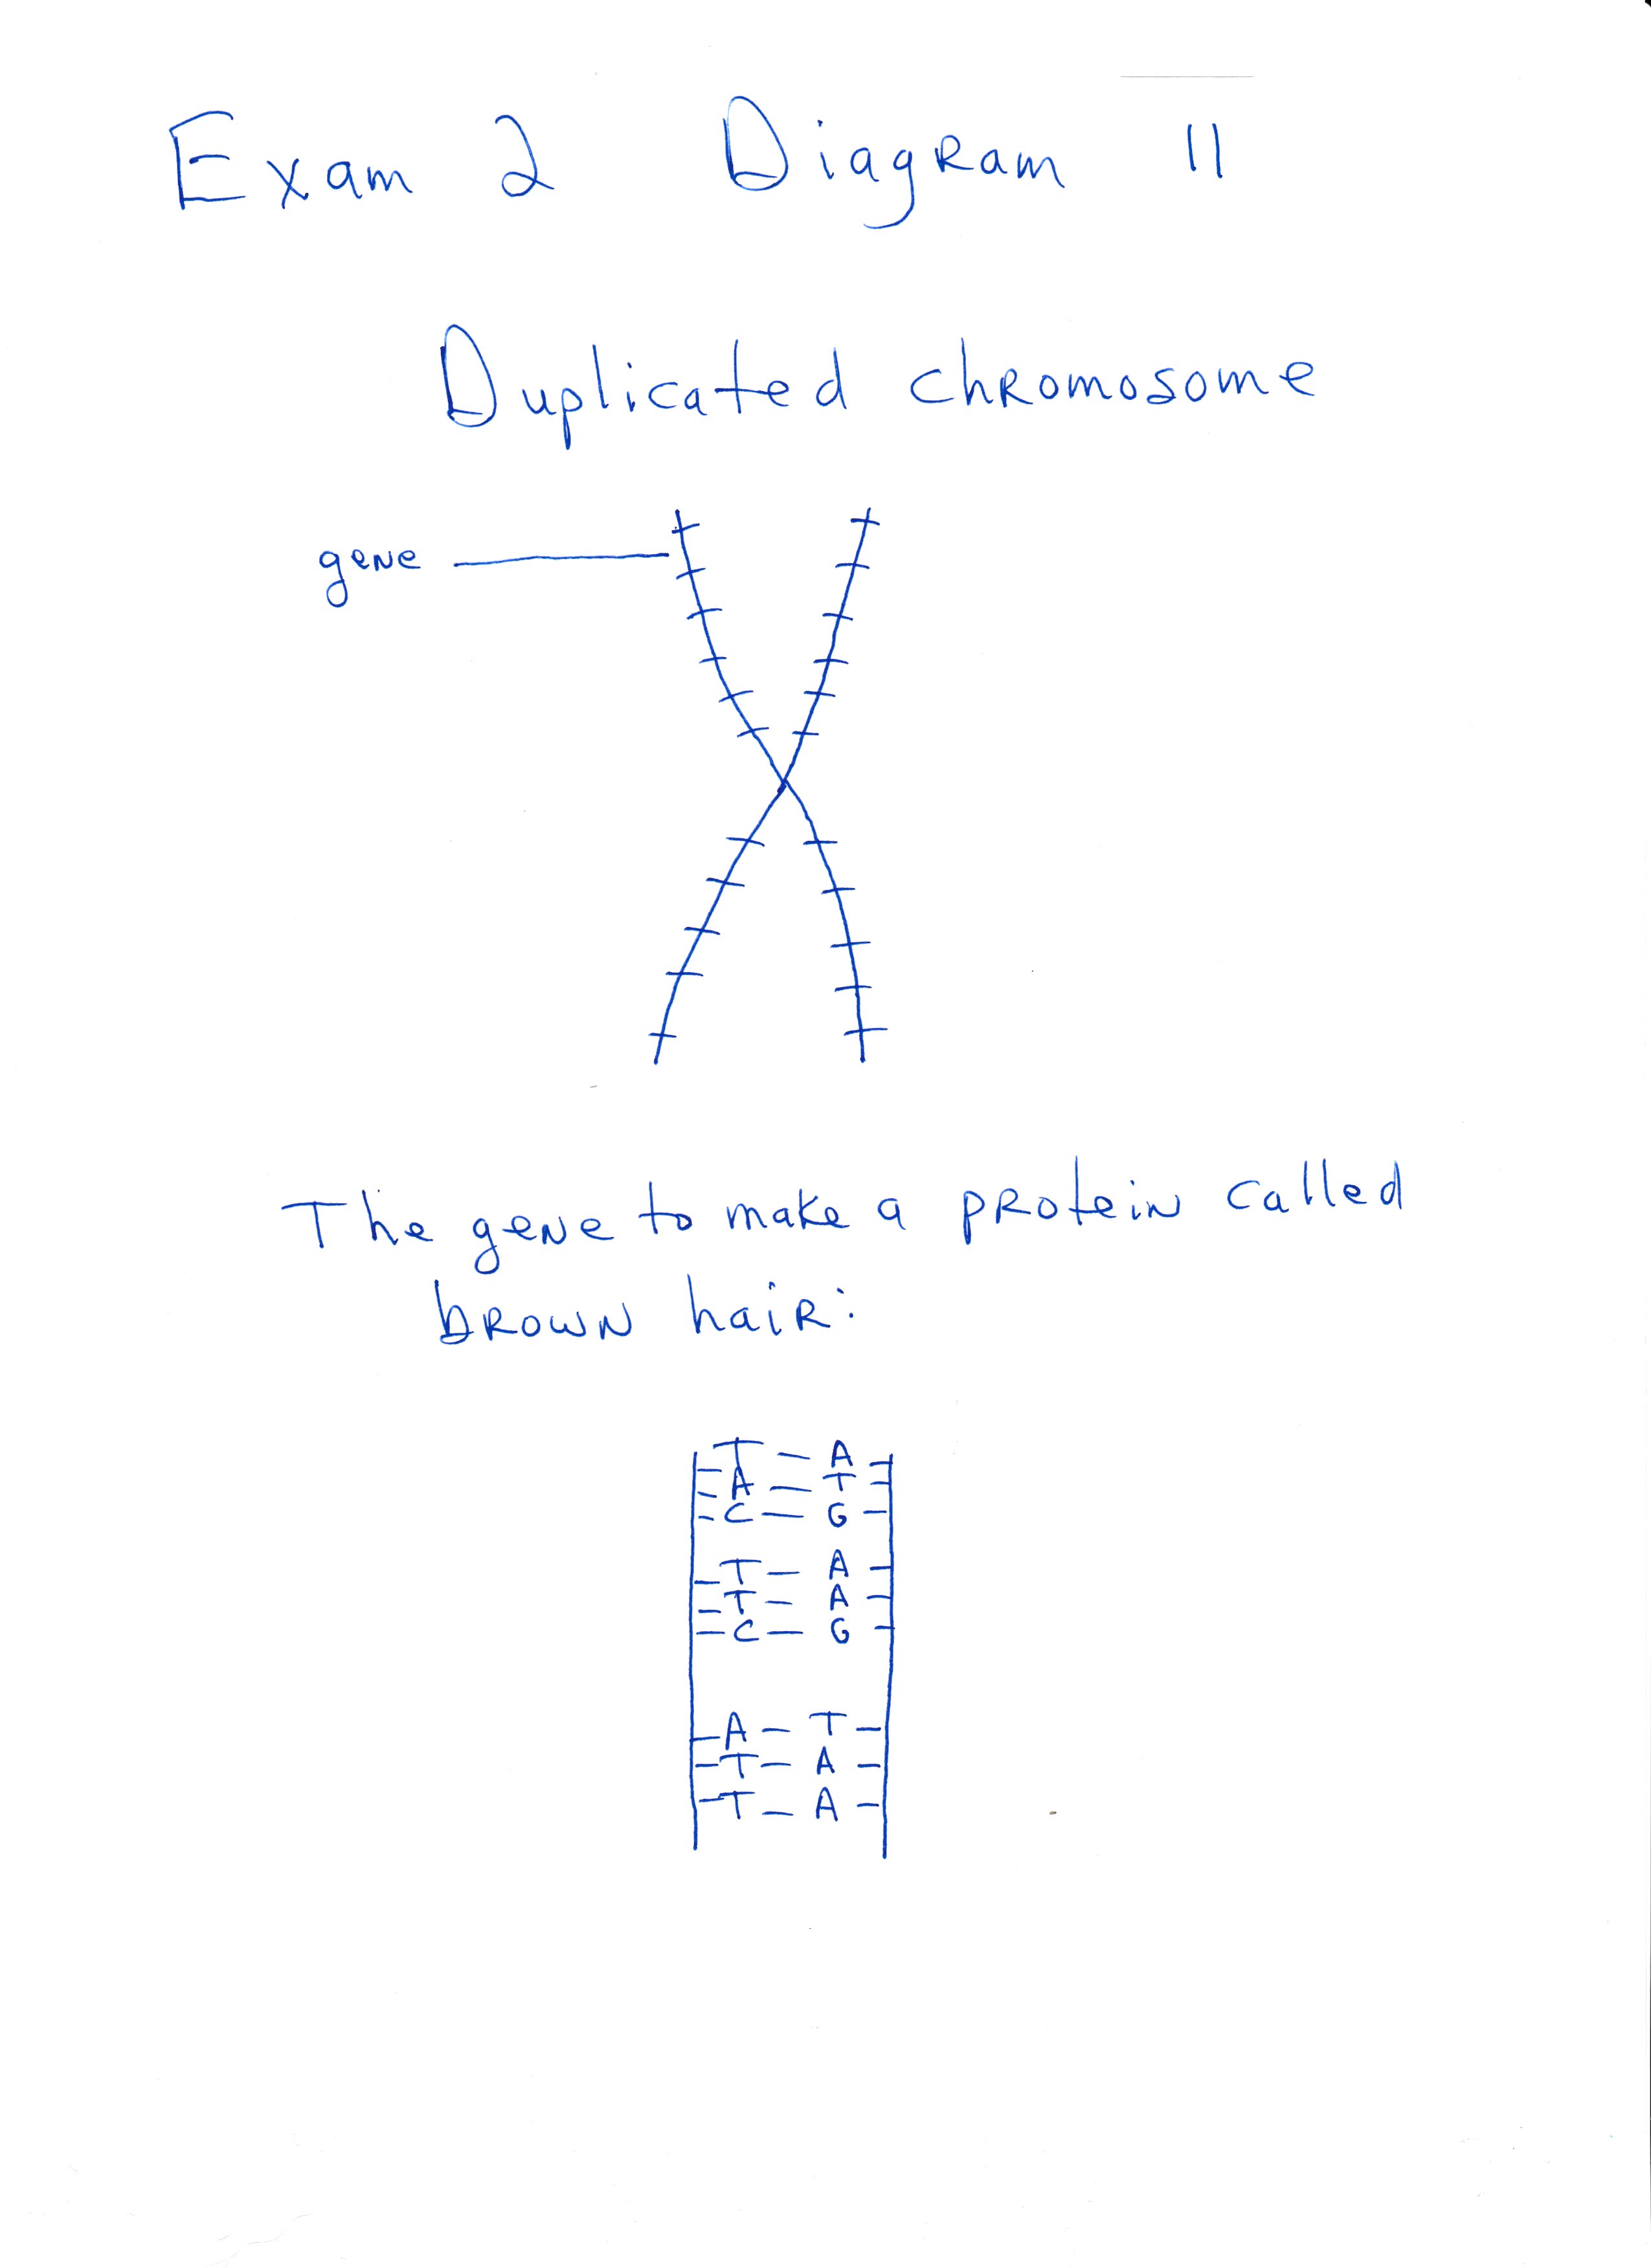 Exam 2 Diagram 11
Duplicated chromosome
gene
The gene to make a protein called
brown hair:
T – A
A – T
C – G
T – A
T – A
C – G
A – T
T – A
T – A